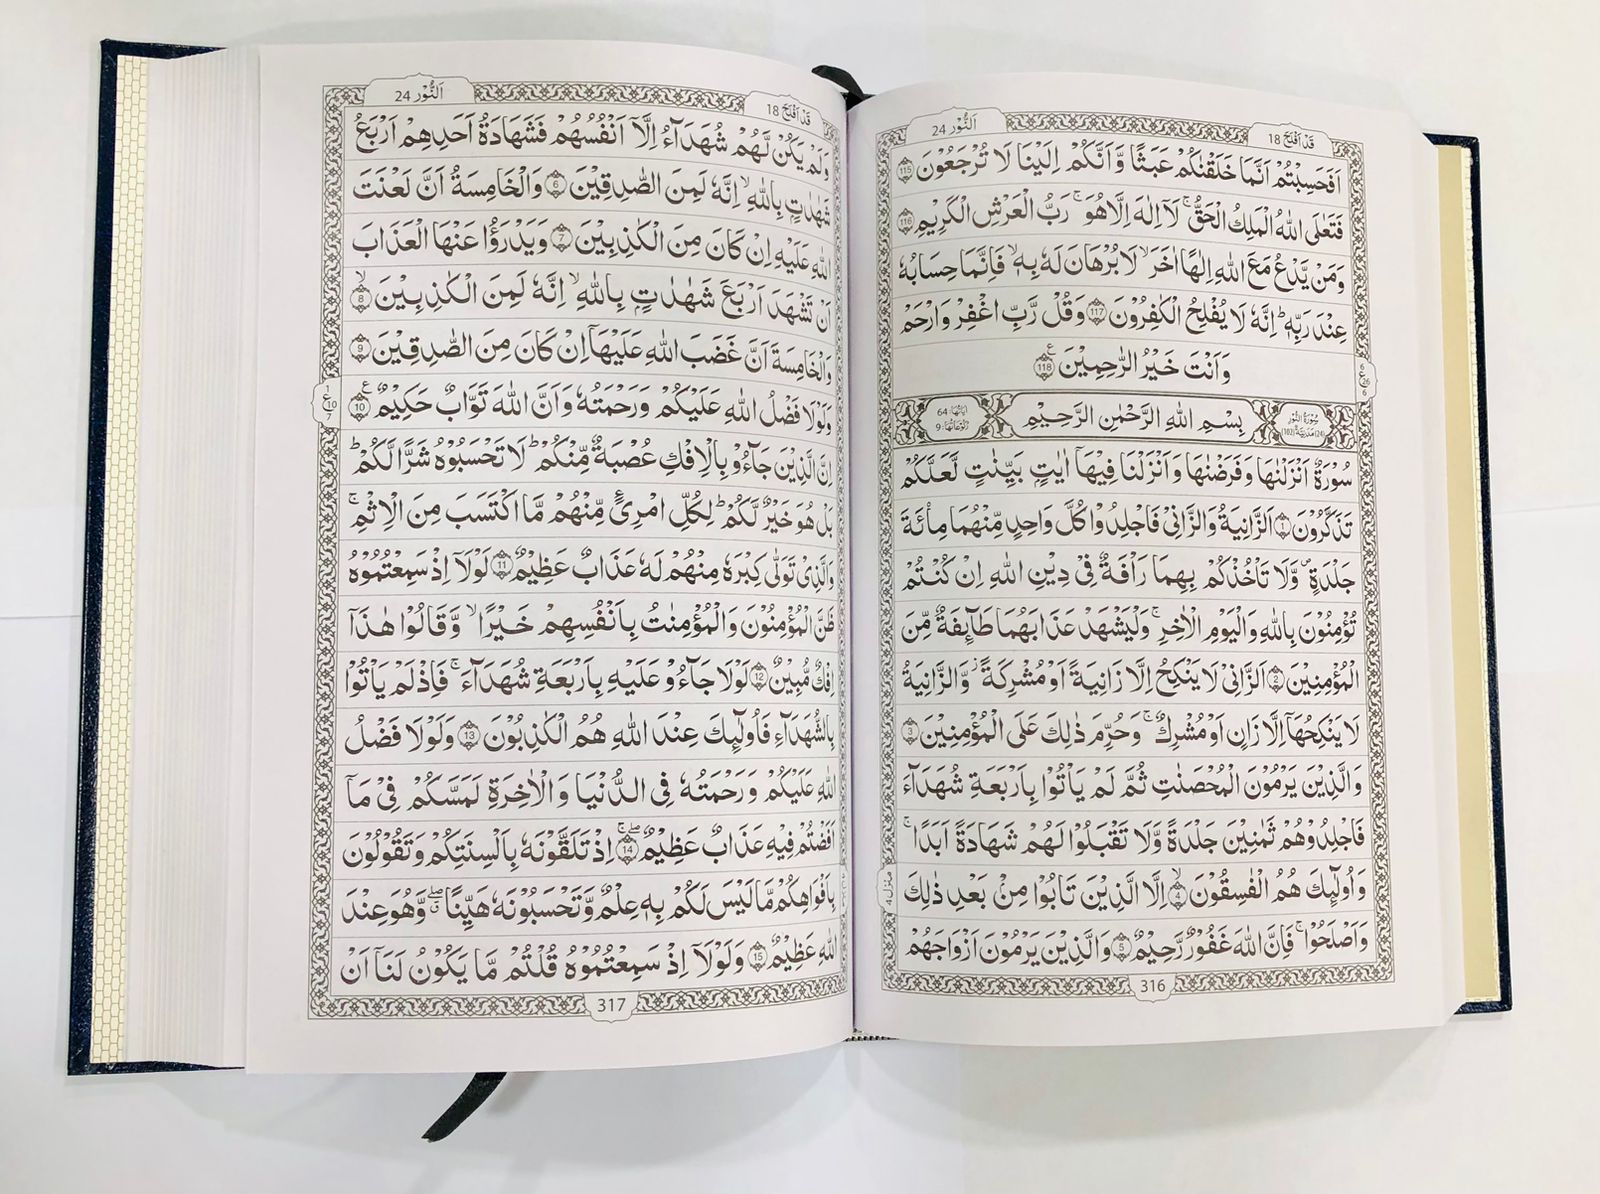 قَدْ اَفْلَحَ 18
اَلنُّوْر 24
اَفَحَسِبْتُمْ اَنَّمَا خَلَقْنٰكُمْ عَبَثًا وَّ اَنَّكُمْ اِلَيْنَا لَا تُرْجَعُوْنَ 115
فَتَعٰلَى اللّٰهُ الْمَلِكُ الْحَقُّ ۚ لَاۤ اِلٰهَ اِلَّا هُوَ ۚ رَبُّ الْعَرْشِ الْكَرِيْمِ 116
وَمَنْ يَّدْعُ مَعَ اللّٰهِ اِلٰهًا اٰخَرَ ۙ لَا بُرْهَانَ لَهٗ بِهٖ ۙ فَاِنَّمَا حِسَابُهٗ
عِنْدَ رَبِّهٖ ؕ اِنَّهٗ لَا يُفْلِحُ الْكٰفِرُوْنَ 117 وَ قُلْ رَّبِّ اغْفِرْ وَ ارْحَمْ
وَ اَنْتَ خَيْرُ الرّٰحِمِيْنَ 118
6 ع 26 6
سُوْرَةُ النُّوْرِ (24) مَدَنِيَّةٌ (102)
بِسْمِ اللّٰهِ الرَّحْمٰنِ الرَّحِيْمِ
اٰيَاتُهَا: 64 رُكُوْعَاتُهَا: 9
سُوْرَةٌ اَنْزَلْنٰهَا وَ فَرَضْنٰهَا وَ اَنْزَلْنَا فِيْهَاۤ اٰيٰتٍۭ بَيِّنٰتٍ لَّعَلَّكُمْ
تَذَكَّرُوْنَ 1 اَلزَّانِيَةُ وَ الزَّانِيْ فَاجْلِدُوْا كُلَّ وَاحِدٍ مِّنْهُمَا مِائَةَ
جَلْدَةٍ ۪ وَّ لَا تَاْخُذْكُمْ بِهِمَا رَاْفَةٌ فِيْ دِيْنِ اللّٰهِ اِنْ كُنْتُمْ
تُؤْمِنُوْنَ بِاللّٰهِ وَ الْيَوْمِ الْاٰخِرِ ۚ وَ لْيَشْهَدْ عَذَابَهُمَا طَآىِٕفَةٌ مِّنَ
الْمُؤْمِنِيْنَ 2 اَلزَّانِيْ لَا يَنْكِحُ اِلَّا زَانِيَةً اَوْ مُشْرِكَةً ؗ وَّ الزَّانِيَةُ
لَا يَنْكِحُهَاۤ اِلَّا زَانٍ اَوْ مُشْرِكٌ ۚ وَ حُرِّمَ ذٰلِكَ عَلَى الْمُؤْمِنِيْنَ 3
وَ الَّذِيْنَ يَرْمُوْنَ الْمُحْصَنٰتِ ثُمَّ لَمْ يَاْتُوْا بِاَرْبَعَةِ شُهَدَآءَ
فَاجْلِدُوْهُمْ ثَمٰنِيْنَ جَلْدَةً وَّ لَا تَقْبَلُوْا لَهُمْ شَهَادَةً اَبَدًا ۚ
وَ اُولٰٓىِٕكَ هُمُ الْفٰسِقُوْنَ ۙ 4 اِلَّا الَّذِيْنَ تَابُوْا مِنْۢ بَعْدِ ذٰلِكَ
وَ اَصْلَحُوْا ۚ فَاِنَّ اللّٰهَ غَفُوْرٌ رَّحِيْمٌ 5 وَ الَّذِيْنَ يَرْمُوْنَ اَزْوَاجَهُمْ
منزل ٤
316
قَدْ اَفْلَحَ 18
اَلنُّوْر 24
وَ لَمْ يَكُنْ لَّهُمْ شُهَدَآءُ اِلَّاۤ اَنْفُسُهُمْ فَشَهَادَةُ اَحَدِهِمْ اَرْبَعُ
شَهٰدٰتٍۭ بِاللّٰهِ ۙ اِنَّهٗ لَمِنَ الصّٰدِقِيْنَ 6 وَ الْخَامِسَةُ اَنَّ لَعْنَتَ
اللّٰهِ عَلَيْهِ اِنْ كَانَ مِنَ الْكٰذِبِيْنَ 7 وَ يَدْرَؤُا عَنْهَا الْعَذَابَ
اَنْ تَشْهَدَ اَرْبَعَ شَهٰدٰتٍۭ بِاللّٰهِ ۙ اِنَّهٗ لَمِنَ الْكٰذِبِيْنَ ۙ 8
وَ الْخَامِسَةَ اَنَّ غَضَبَ اللّٰهِ عَلَيْهَاۤ اِنْ كَانَ مِنَ الصّٰدِقِيْنَ 9
وَ لَوْ لَا فَضْلُ اللّٰهِ عَلَيْكُمْ وَ رَحْمَتُهٗ وَ اَنَّ اللّٰهَ تَوَّابٌ حَكِيْمٌ 10
1 ع 10 7
اِنَّ الَّذِيْنَ جَآءُوْ بِالْاِفْكِ عُصْبَةٌ مِّنْكُمْ ؕ لَا تَحْسَبُوْهُ شَرًّا لَّكُمْ ؕ
بَلْ هُوَ خَيْرٌ لَّكُمْ ؕ لِكُلِّ امْرِئٍ مِّنْهُمْ مَّا اكْتَسَبَ مِنَ الْاِثْمِ ۚ
وَ الَّذِيْ تَوَلّٰى كِبْرَهٗ مِنْهُمْ لَهٗ عَذَابٌ عَظِيْمٌ 11 لَوْ لَاۤ اِذْ سَمِعْتُمُوْهُ
ظَنَّ الْمُؤْمِنُوْنَ وَ الْمُؤْمِنٰتُ بِاَنْفُسِهِمْ خَيْرًا ۙ وَّ قَالُوْا هٰذَاۤ
اِفْكٌ مُّبِيْنٌ 12 لَوْ لَا جَآءُوْ عَلَيْهِ بِاَرْبَعَةِ شُهَدَآءَ ۚ فَاِذْ لَمْ يَاْتُوْا
بِالشُّهَدَآءِ فَاُولٰٓىِٕكَ عِنْدَ اللّٰهِ هُمُ الْكٰذِبُوْنَ 13 وَ لَوْ لَا فَضْلُ
اللّٰهِ عَلَيْكُمْ وَ رَحْمَتُهٗ فِي الدُّنْيَا وَ الْاٰخِرَةِ لَمَسَّكُمْ فِيْ مَاۤ
اَفَضْتُمْ فِيْهِ عَذَابٌ عَظِيْمٌ ۖۚ 14 اِذْ تَلَقَّوْنَهٗ بِاَلْسِنَتِكُمْ وَ تَقُوْلُوْنَ
بِاَفْوَاهِكُمْ مَّا لَيْسَ لَكُمْ بِهٖ عِلْمٌ وَّ تَحْسَبُوْنَهٗ هَيِّنًا ۖۗ وَّ هُوَ عِنْدَ
اللّٰهِ عَظِيْمٌ 15 وَ لَوْ لَاۤ اِذْ سَمِعْتُمُوْهُ قُلْتُمْ مَّا يَكُوْنُ لَنَاۤ اَنْ
317